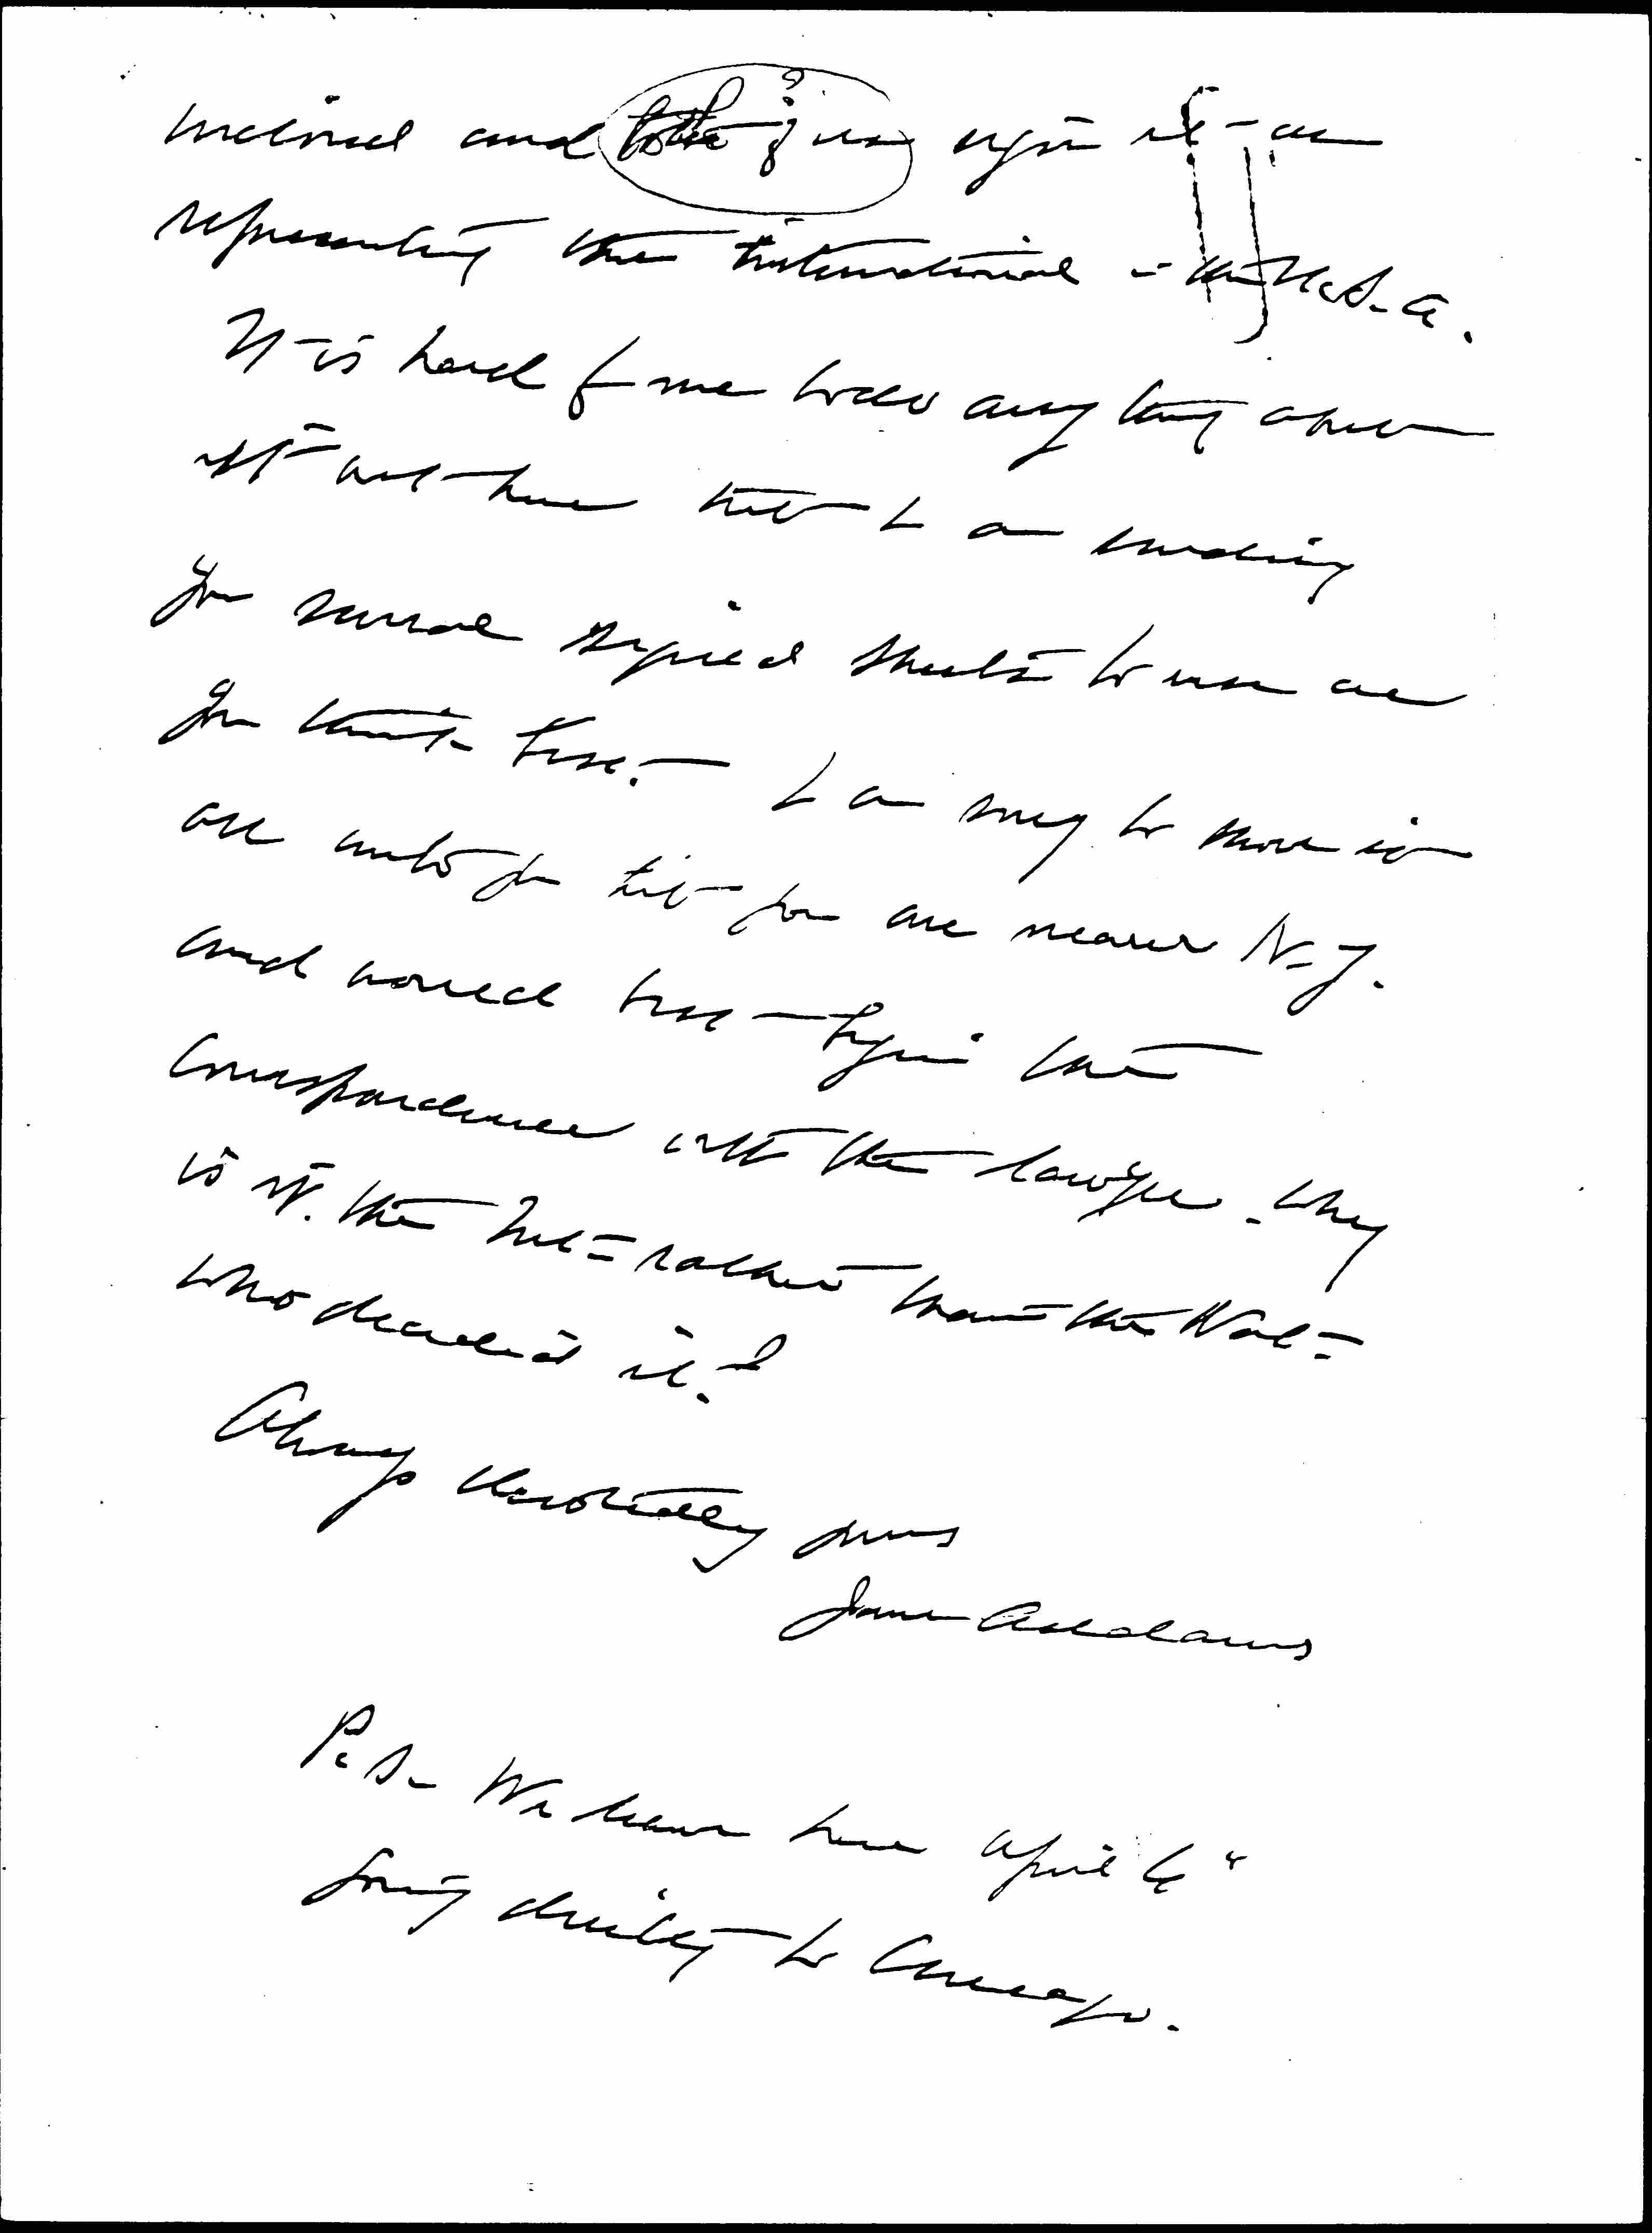 inclined and both of us sign it - as
representing the International in the U.S.A.
It is hard for me to do any thing about
it out here but I am sending
you several signed sheets to use as
you think best. I am sorry to move it
all unto you but you are nearer N.J.
and would best begin the
correspondence with the lawyer. Why
is it the Int= rather than the Nat=
who decides it?
Always devotedly yours
Jane Addams
P.S. We leave here April 6"
going directly to Chicago.